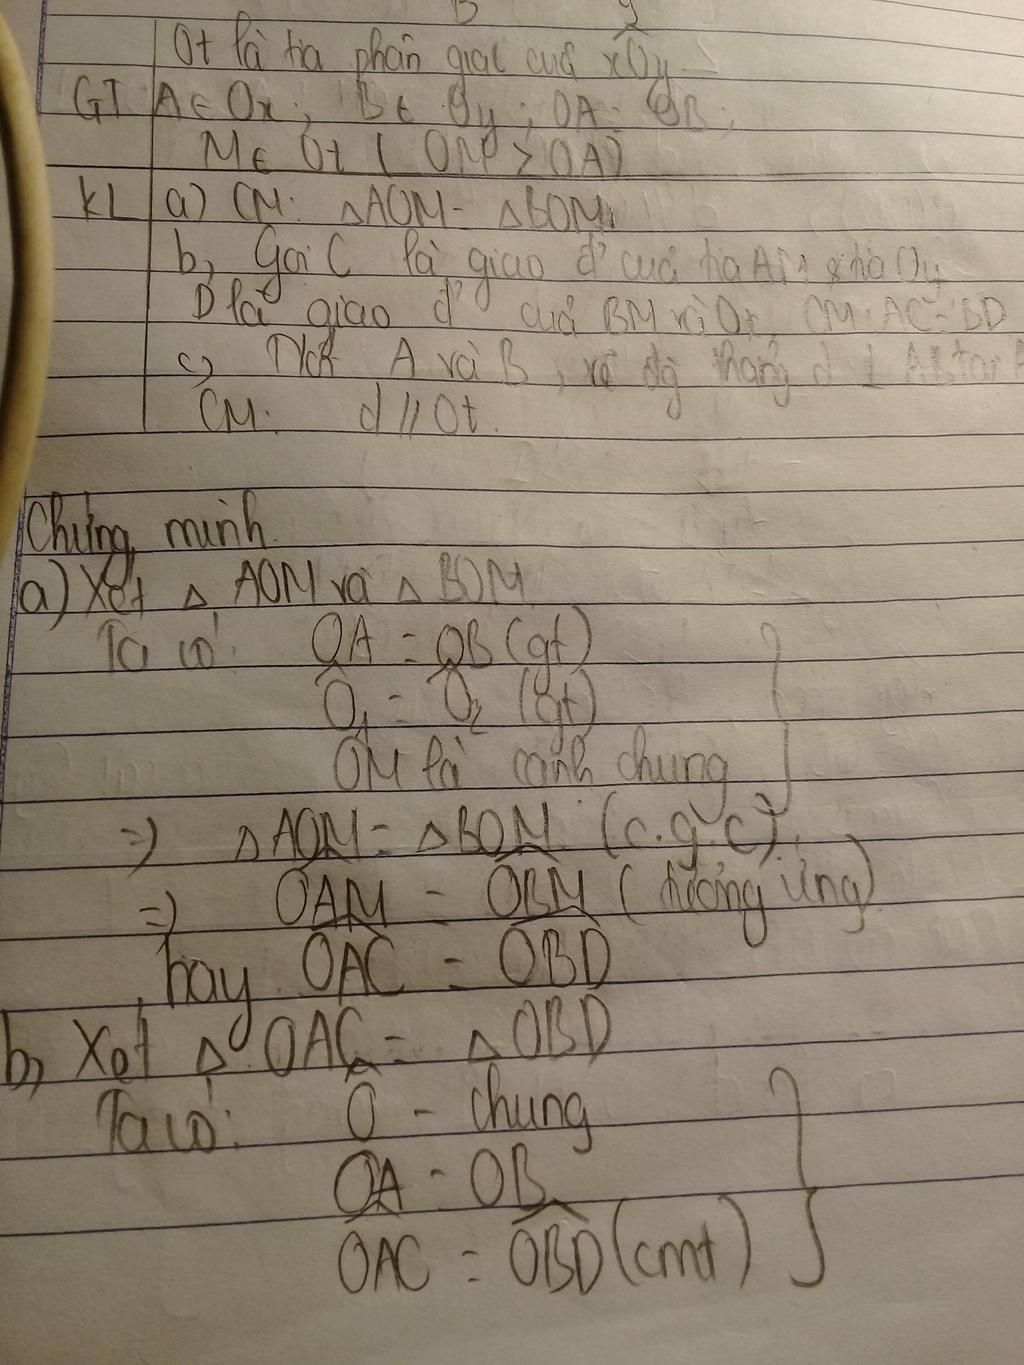 B y
Ot là tia phân giác cuả xOy
GT A ∈ Ox; B ∈ Oy; OA = OB;
M ∈ Ot ( OM > OA)
KL a) CM: △AOM = △BOM
b, Gọi C là giao đ' cuả tia AM & tia Oy
D là giao đ' cuả BM và Ox, CM: AC = BD
c, Nối A và B, vẽ đg thẳng d ⊥ AB tại A
CM: d // Ot.
Chứng minh
a) Xét △ AOM và △ BOM
Ta có: OA = OB (gt)
Ô1 = Ô2 (gt)
OM là cạnh chung
=) △AOM = △BOM (c.g.c).
=) OAM = OBM ( tương ứng)
hay OAC = OBD
b, Xét △ OAC = △ OBD
Ta có: Ô - chung
OA = OB
OAC = OBD (cmt)